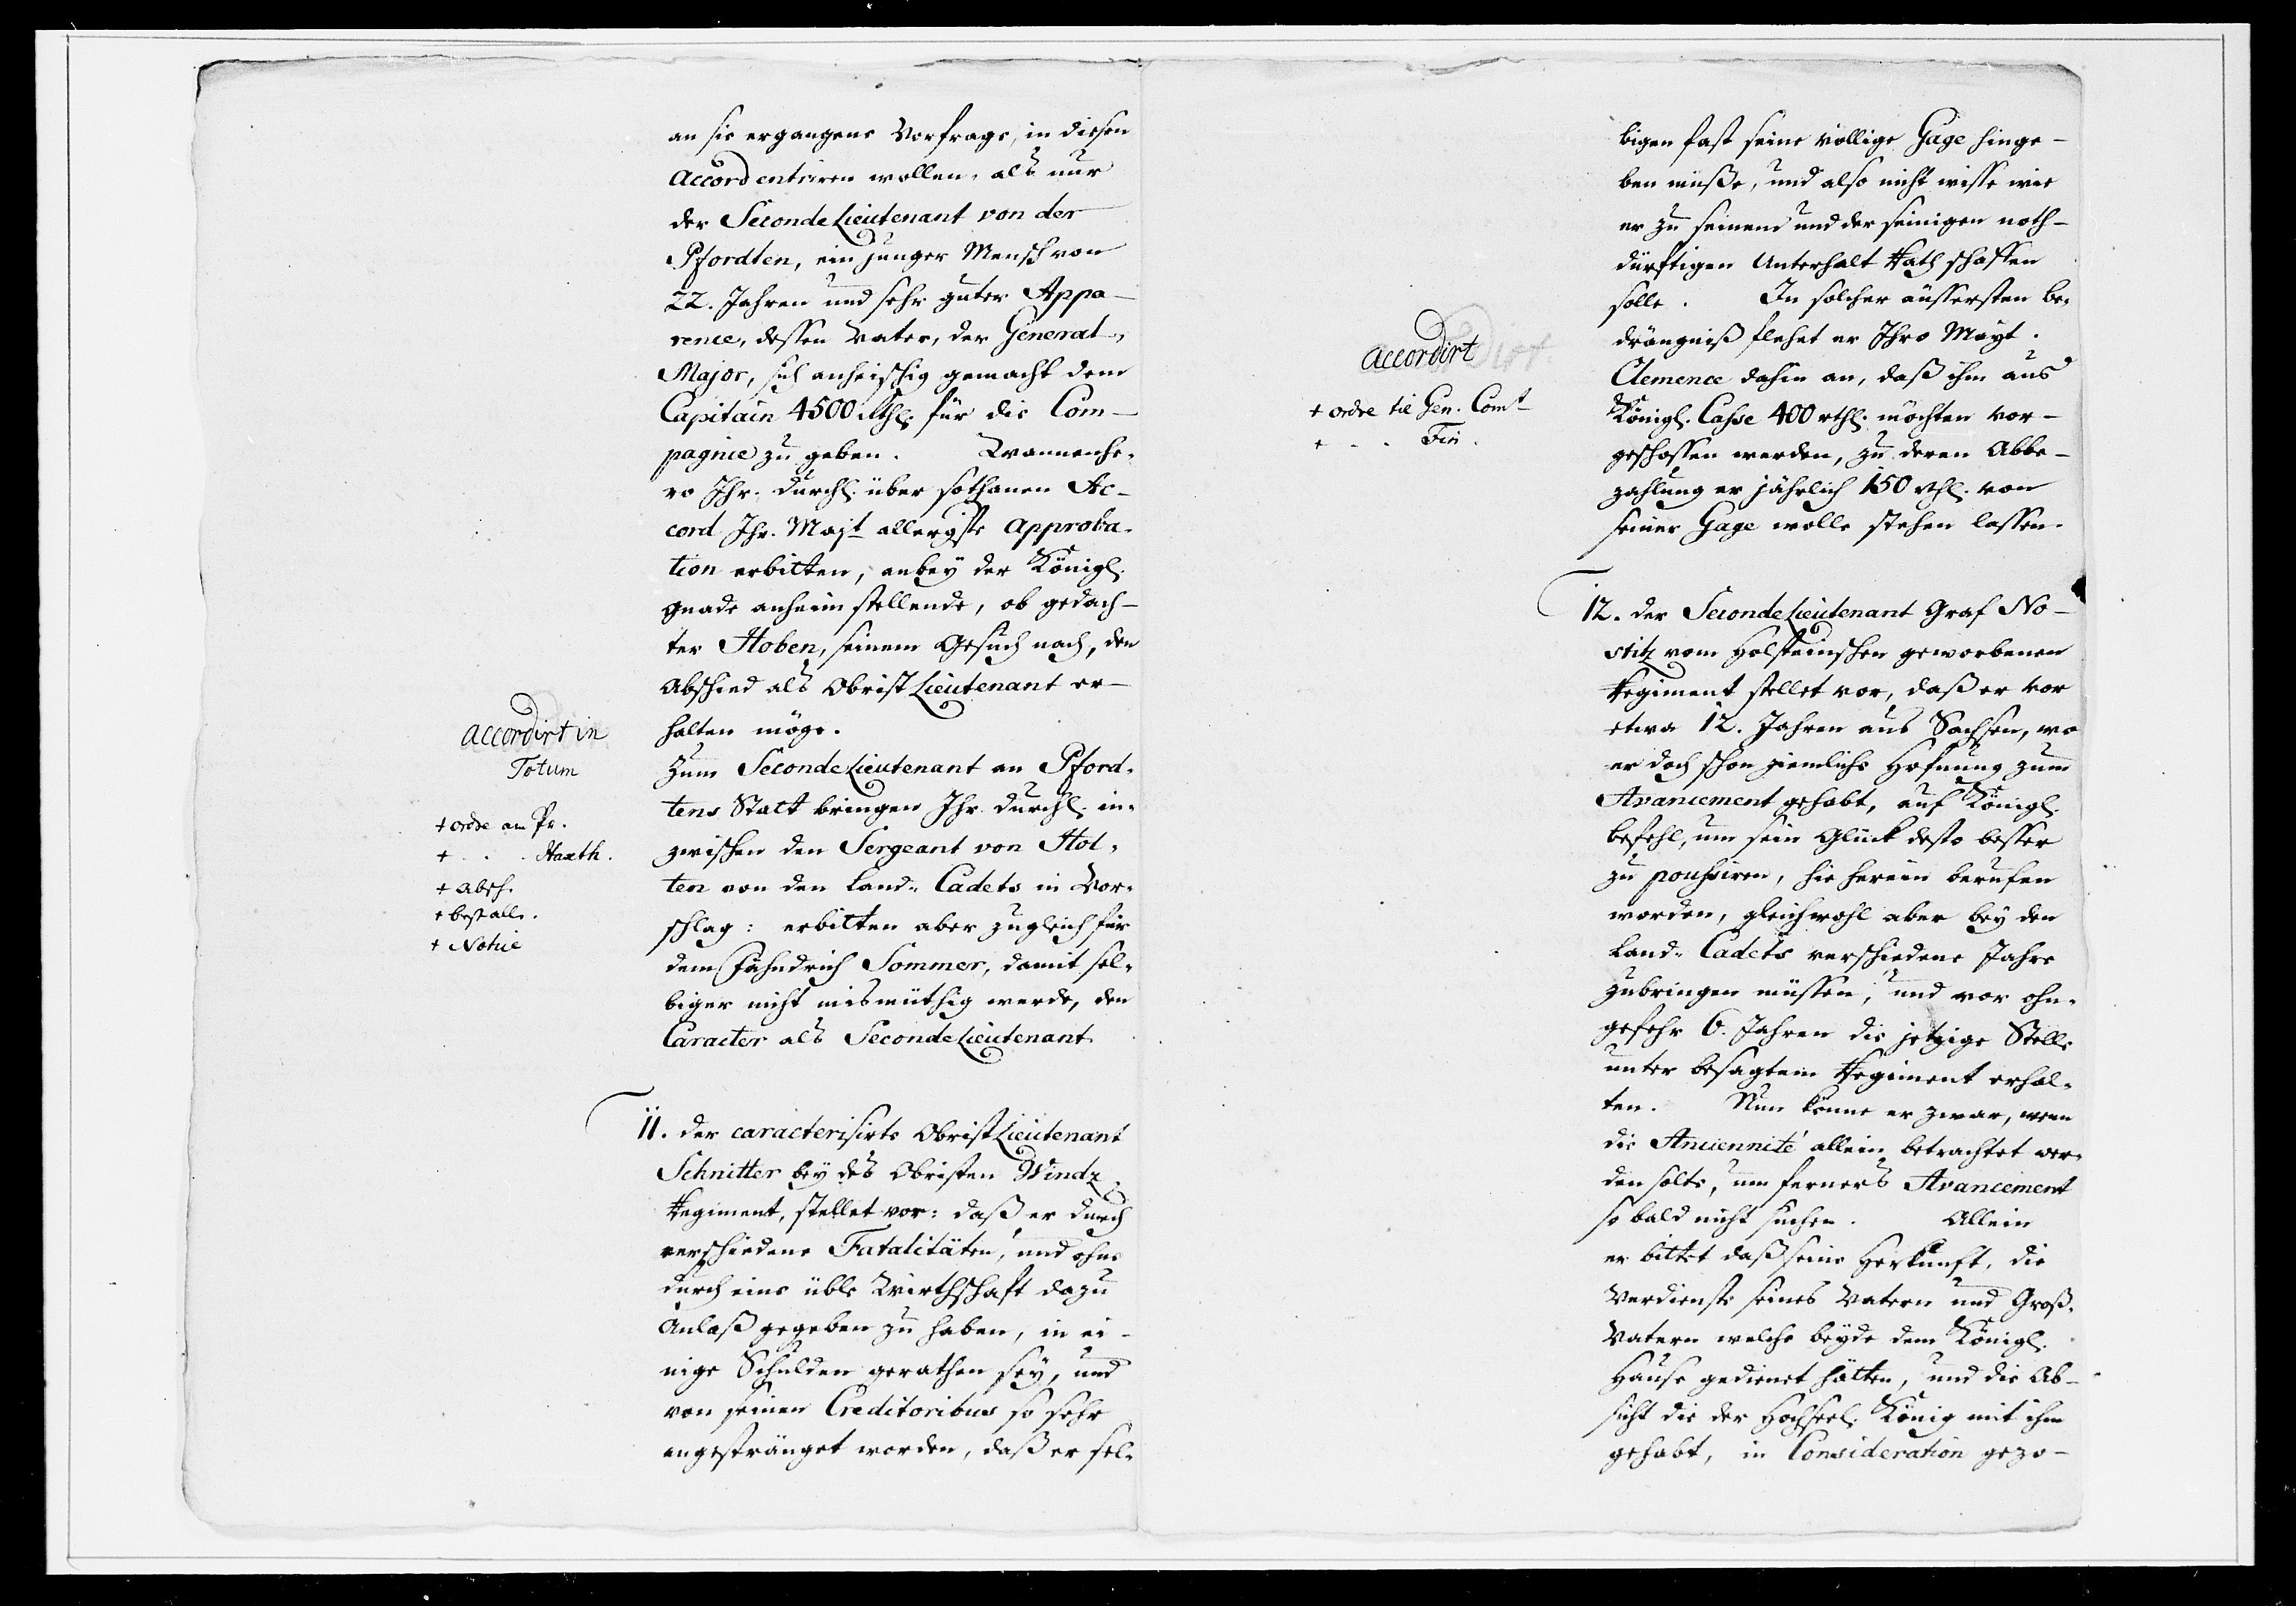 an sie ergangene Vorfrage, in diesen
Accord entriren wollen, als nur
der SecondeLieutenant von der
Pfordten, ein junger Mensch von
22. Jahren und sehr guter Appa-
rence, dessen Vater, der General-
Major, sich anheischig gemacht dem
Capitain 4500 Rthl. für die Com-
pagnie zu geben. Wannenhe-
ro Ihr. Durchl. über sothanen Ac-
cord Ihr. Majt allergste Approba-
tion erbitten, anbey der Königl.
Gnade anheim stellende, ob gedach-
ter Hoben, seinem Gesuch nach, den
Abschied als ObristLieutenant er-
halten möge.
Accordirt in
Totum
+ ordre am Pr.
+ . . . Haxth.
+ absch.
+ bestall.
+ Notice
Zum SecondeLieutenant an Pford-
tens Statt bringen Ihr Durchl. in-
zwischen den Sergeant von Hol-
ten von den Land-Cadets in Vor-
schlag: erbitten aber zugleich für
dem Fähndrich Sommer, damit sel-
biger nicht mismüthig werde, den
Caracter als SecondeLieutenant
11. der caracterisirte ObristLieutenant
Schnitter bey des Obristen Windz
Regiment, stellet vor: daß er durch
verschiedene Fatalitäten, und ohne
durch eine üble Wirthschaft dazu
Anlaß gegeben zu haben, in ei-
nige Schulden gerathen sey, und
von seinen Creditoribus so sehr
angestränget worden, daß er sel-
bigen fast seine völlige Gage hinge-
ben müße, und also nicht wisse wie
er zu seinem und der seinigen noth-
dürftigen Unterhalt Rath schaffen
solle. In solcher äussersten be-
drängniß flehet er Ihro Mayt.
Clemence dahin an, daß ihm aus
Königl. Casse 400 rthl. möchten vor-
geschossen werden, zu deren Abbe-
zahlung er jährlich 150 rthl. von
seiner Gage wolle stehen lassen.
Accordirt
+ ordre til Gen. Comt
+ . . Fin.
12. der SecondeLieutenant Graf No-
stitz vom Holsteinschen geworbenen
Regiment stellet vor, daß er vor
etwa 12. Jahren aus Sachsen, wo
er doch schon ziemliche Hofnung zum
Avancement gehabt, auf Königl.
befehl, um sein Glück desto besser
zu poussiren, hie herein berufen
worden, gleichwohl aber bey den
Land-Cadets verschiedene Jahre
zubringen müssen, und vor ohn-
gefehr 6. Jahren die jetzige Stelle
unter besagtem Regiment erhal-
ten. Nun könne er zwar, wenn
die Anciennité allein betrachtet wer-
den solte, um ferners Avancement
so bald nicht suchen. Allein
er bittet daß seine Herkunft, die
Verdienste seines Vatern und Groß-
Vatern welche beyde dem Königl.
Hause gedienet hätten, und die Ab-
sicht die der Hochseel. König mit ihm
gehabt, in Consideration gezo-